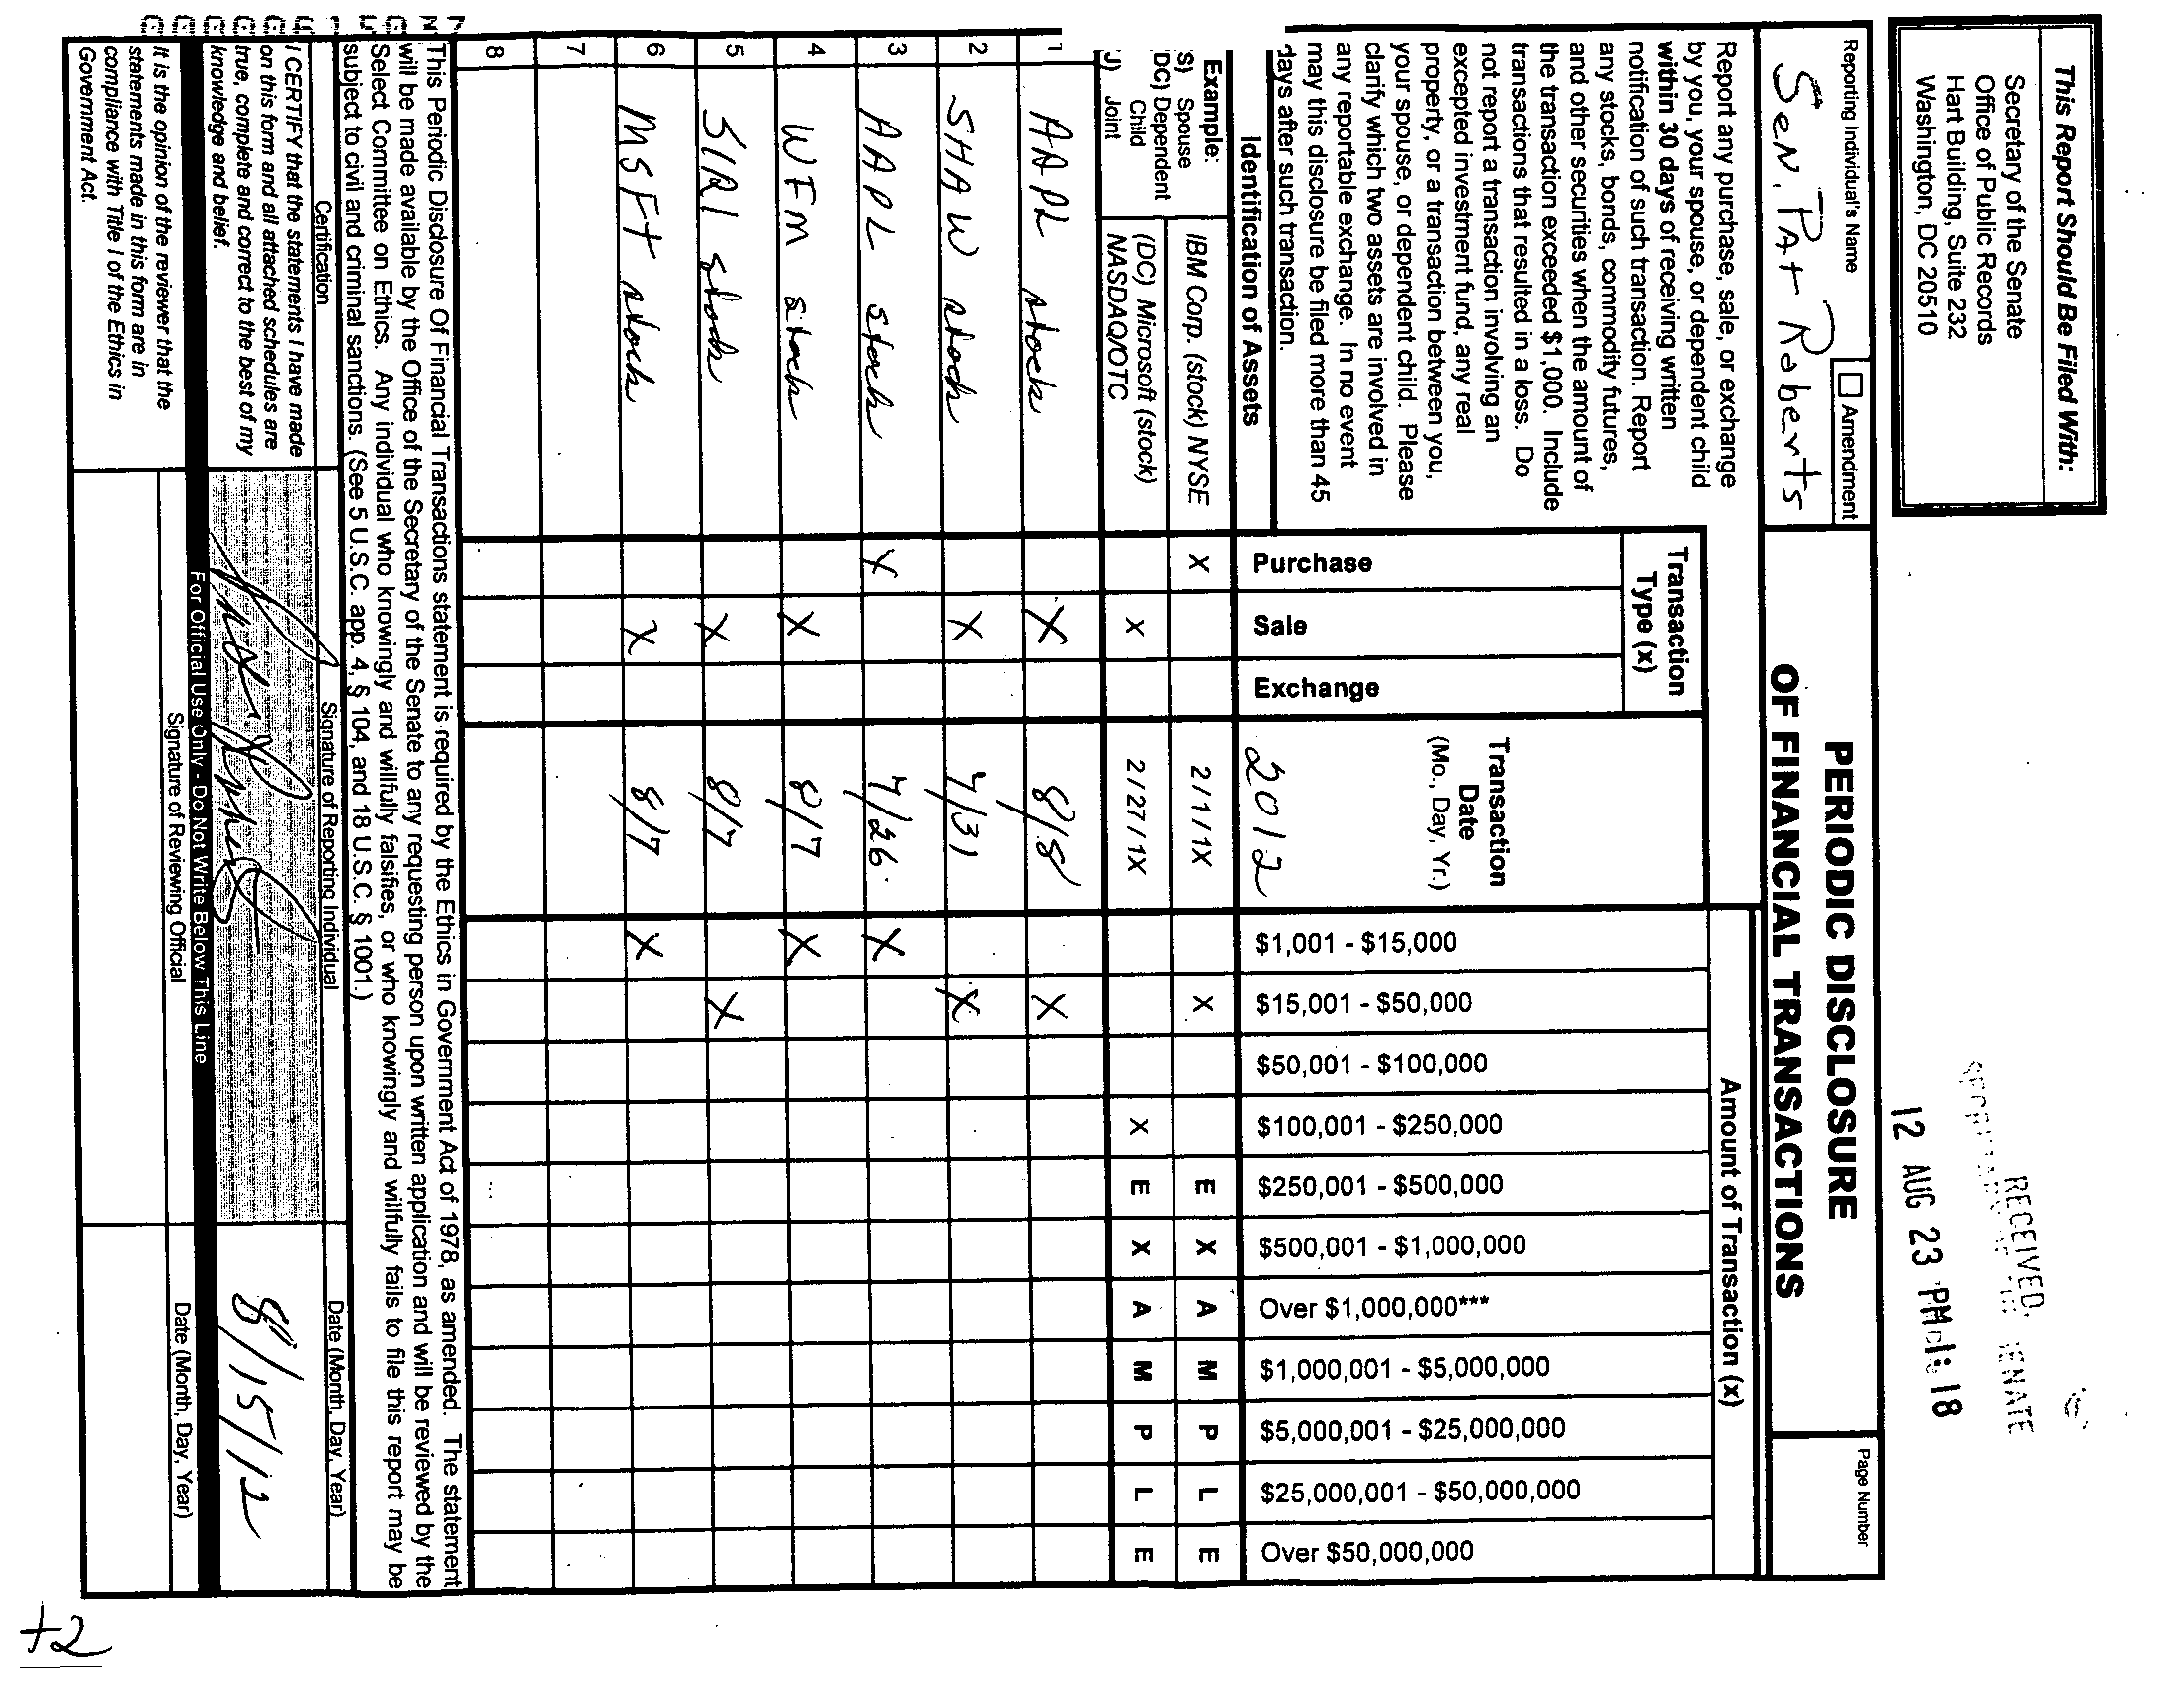 This Report Should Be Filed With:
Secretary of the Senate
Office of Public Records
Hart Building, Suite 232
Washington, DC 20510
RECEIVED
SENATE
12 AUG 23 PM 18
Reporting Individual's Name
Amendment
Sen. Pat Roberts
PERIODIC DISCLOSURE
OF FINANCIAL TRANSACTIONS
Page Number
Report any purchase, sale, or exchange
by you, your spouse, or dependent child
within 30 days of receiving written
notification of such transaction. Report
any stocks, bonds, commodity futures,
and other securities when the amount of
the transaction exceeded $1,000. Include
transactions that resulted in a loss. Do
not report a transaction involving an
excepted investment fund, any real
property, or a transaction between you,
your spouse, or dependent child. Please
clarify which two assets are involved in
any reportable exchange. In no event
may this disclosure be filed more than 45
days after such transaction.
Identification of Assets
Transaction
Type (x)
Purchase
Sale
Exchange
Transaction
Date
(Mo., Day, Yr.)
2012
Amount of Transaction (x)
$1,001 - $15,000
$15,001 - $50,000
$50,001 - $100,000
$100,001 - $250,000
$250,001 - $500,000
$500,001 - $1,000,000
Over $1,000,000***
$1,000,001 - $5,000,000
$5,000,001 - $25,000,000
$25,000,001 - $50,000,000
Over $50,000,000
Example:
S) Spouse
DC) Dependent
Child
J) Joint
IBM Corp. (stock) NYSE X 2/1/1X X E X A M P L E
(DC) Microsoft (stock)
NASDAQ/OTC X 2/27/1X X E X A M P L E
1 AAPL stock X 8/8 X
2 SHAW stock X 7/31 X
3 AAPL stock X 7/26 X
4 WFM stock X 8/7 X
5 SIRI stock X 8/7 X
6 MSFT stock X 8/7 X
7
8
This Periodic Disclosure Of Financial Transactions statement is required by the Ethics in Government Act of 1978, as amended. The statement
will be made available by the Office of the Secretary of the Senate to any requesting person upon written application and will be reviewed by the
Select Committee on Ethics. Any individual who knowingly and willfully falsifies, or who knowingly and willfully fails to file this report may be
subject to civil and criminal sanctions. (See 5 U.S.C. app. 4, § 104, and 18 U.S.C. § 1001.)
Certification
Signature of Reporting Individual
Date (Month, Day, Year)
I CERTIFY that the statements I have made
on this form and all attached schedules are
true, complete and correct to the best of my
knowledge and belief.
8/15/12
For Official Use Only - Do Not Write Below This Line
It is the opinion of the reviewer that the
statements made in this form are in
compliance with Title I of the Ethics in
Government Act.
Signature of Reviewing Official
Date (Month, Day, Year)
+2